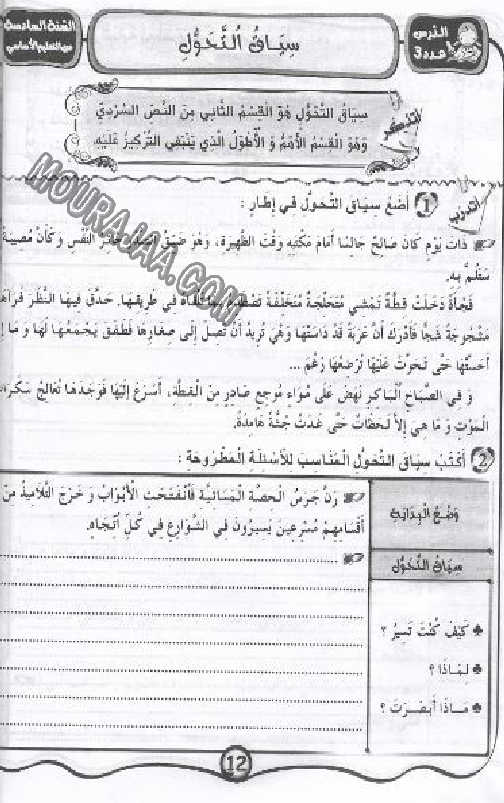 السّنة السّادسة
من التعليم الأساسي
سِيَاقُ التَّحَوُّلِ
الدّرس
عدد 3
أتذكّر
سِيَاقُ التَّحَوُّلِ هُوَ الْقِسْمُ الثَّانِي مِنَ النَّصِّ السَّرْدِيِّ
وَهُوَ الْقِسْمُ الأَهَمُّ وَ الأَطْوَلُ الَّذِي يَنْبَغِي التَّرْكِيزُ عَلَيْهِ.
أتدرّب
1 أَضَعُ سِيَاقَ التَّحَوُّلِ فِي إِطَارٍ :
ذَاتَ يَوْمٍ كَانَ صَالِحٌ جَالِسًا أَمَامَ مَكْتَبِهِ وَقْتَ الظَّهِيرَةِ، وَهُوَ ضَيِّقُ الصَّدْرِ النَّفْسِ وَ كَأَنَّ مُصِيبَةً
سَتُلِمُّ بِهِ.
فَجْأَةً دَخَلَتْ قِطَّةٌ تَمْشِي مُتَخَلِّجَةً تَصْطَدِمُ بِمَا تَلْقَاهُ فِي طَرِيقِهَا. حَدَّقَ فِيهَا النَّظَرَ فَرَآهَا
مَشْجُوجَةً شَجًّا فَأَدْرَكَ أَنَّ عَرَبَةً قَدْ دَاسَتْهَا وَهِيَ تُرِيدُ أَنْ تَصِلَ إِلَى صِغَارِهَا فَطَفِقَ يَجْمَعُهَا لَهَا وَ مَا إِنْ
أَحَسَّتْهَا حَتَّى تَحَرَّتْ عَلَيْهَا تُرْضِعُهَا رَغْمَ ...
وَ فِي الصَّبَاحِ الْبَاكِرِ نَهَضَ عَلَى مُوَاءٍ مُوجِعٍ صَادِرٍ مِنَ الْقِطَّةِ، أَسْرَعَ إِلَيْهَا فَوَجَدَهَا تُعَالِجُ سَكْرَةَ
الْمَوْتِ وَ مَا هِيَ إِلاَّ لَحَظَاتٌ حَتَّى غَدَتْ جُثَّةً هَامِدَةً.
2 أَكْتُبُ سِيَاقَ التَّحَوُّلِ الْمُنَاسِبَ لِلأَسْئِلَةِ الْمَطْرُوحَةِ :
وَضْعُ الْبِدَايَةِ
رَنَّ جَرَسُ الْحِصَّةِ الْمَسَائِيَّةِ فَانْفَتَحَتِ الأَبْوَابُ وَ خَرَجَ التَّلاَمِيذُ مِنْ
أَقْسَامِهِمْ مُسْرِعِينَ يَسِيرُونَ فِي الشَّوَارِعِ فِي كُلِّ اتِّجَاهٍ.
سِيَاقُ التَّحَوُّلِ
♣ كَيْفَ كُنْتَ تَسِيرُ ؟
♣ لِمَاذَا ؟
♣ مَاذَا أَبْصَرْتَ ؟
12
MOURAJAA.COM